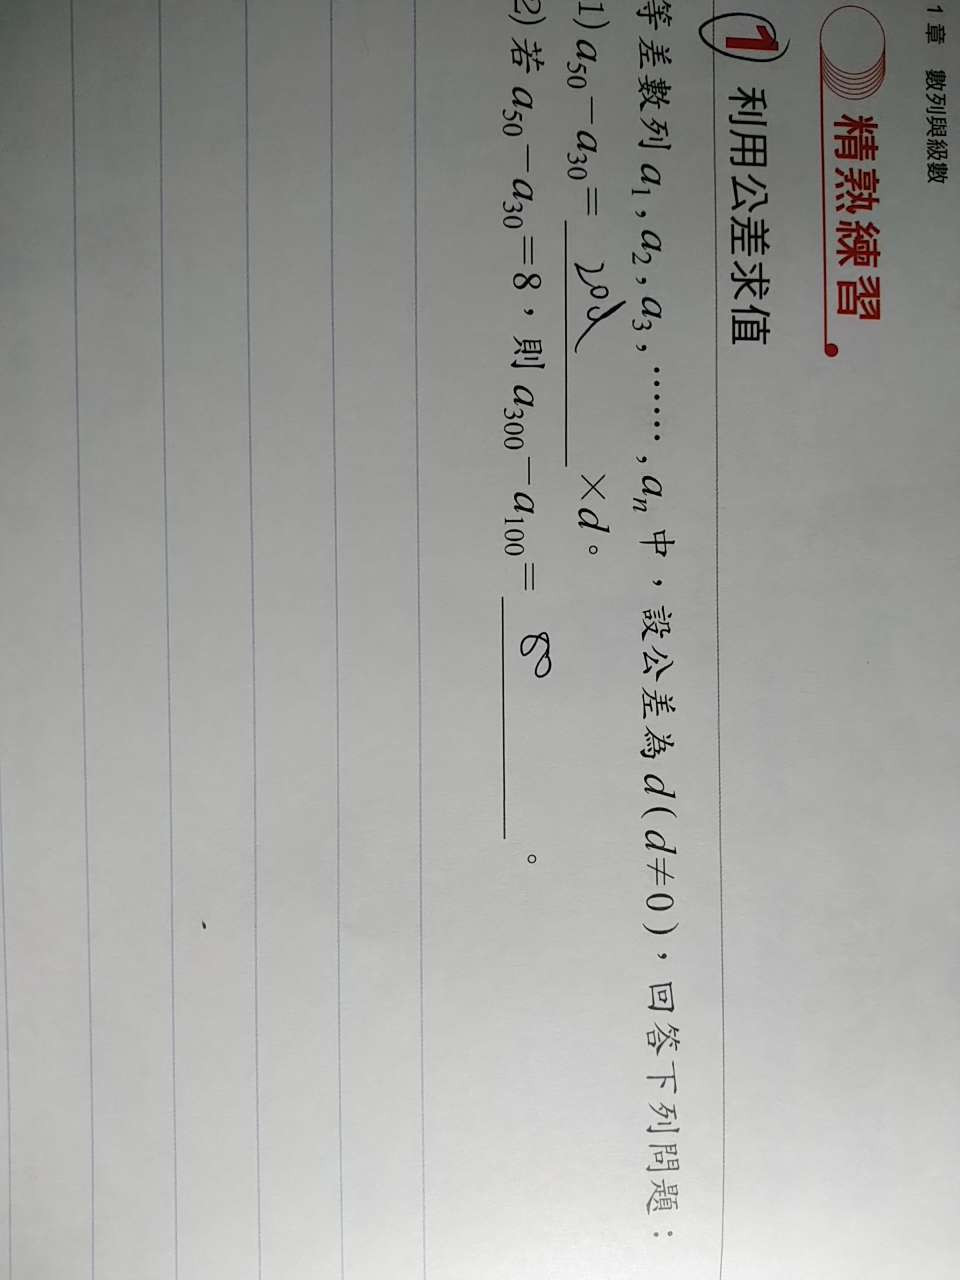 1 章 數列與級數
精熟練習
1 利用公差求值
等差數列 a₁, a₂, a₃, ……, aₙ 中，設公差為 d(d≠0)，回答下列問題：
1) a₅₀－a₃₀＝ 20d ×d。
2) 若 a₅₀－a₃₀＝8，則 a₃₀₀－a₁₀₀＝ 80 。